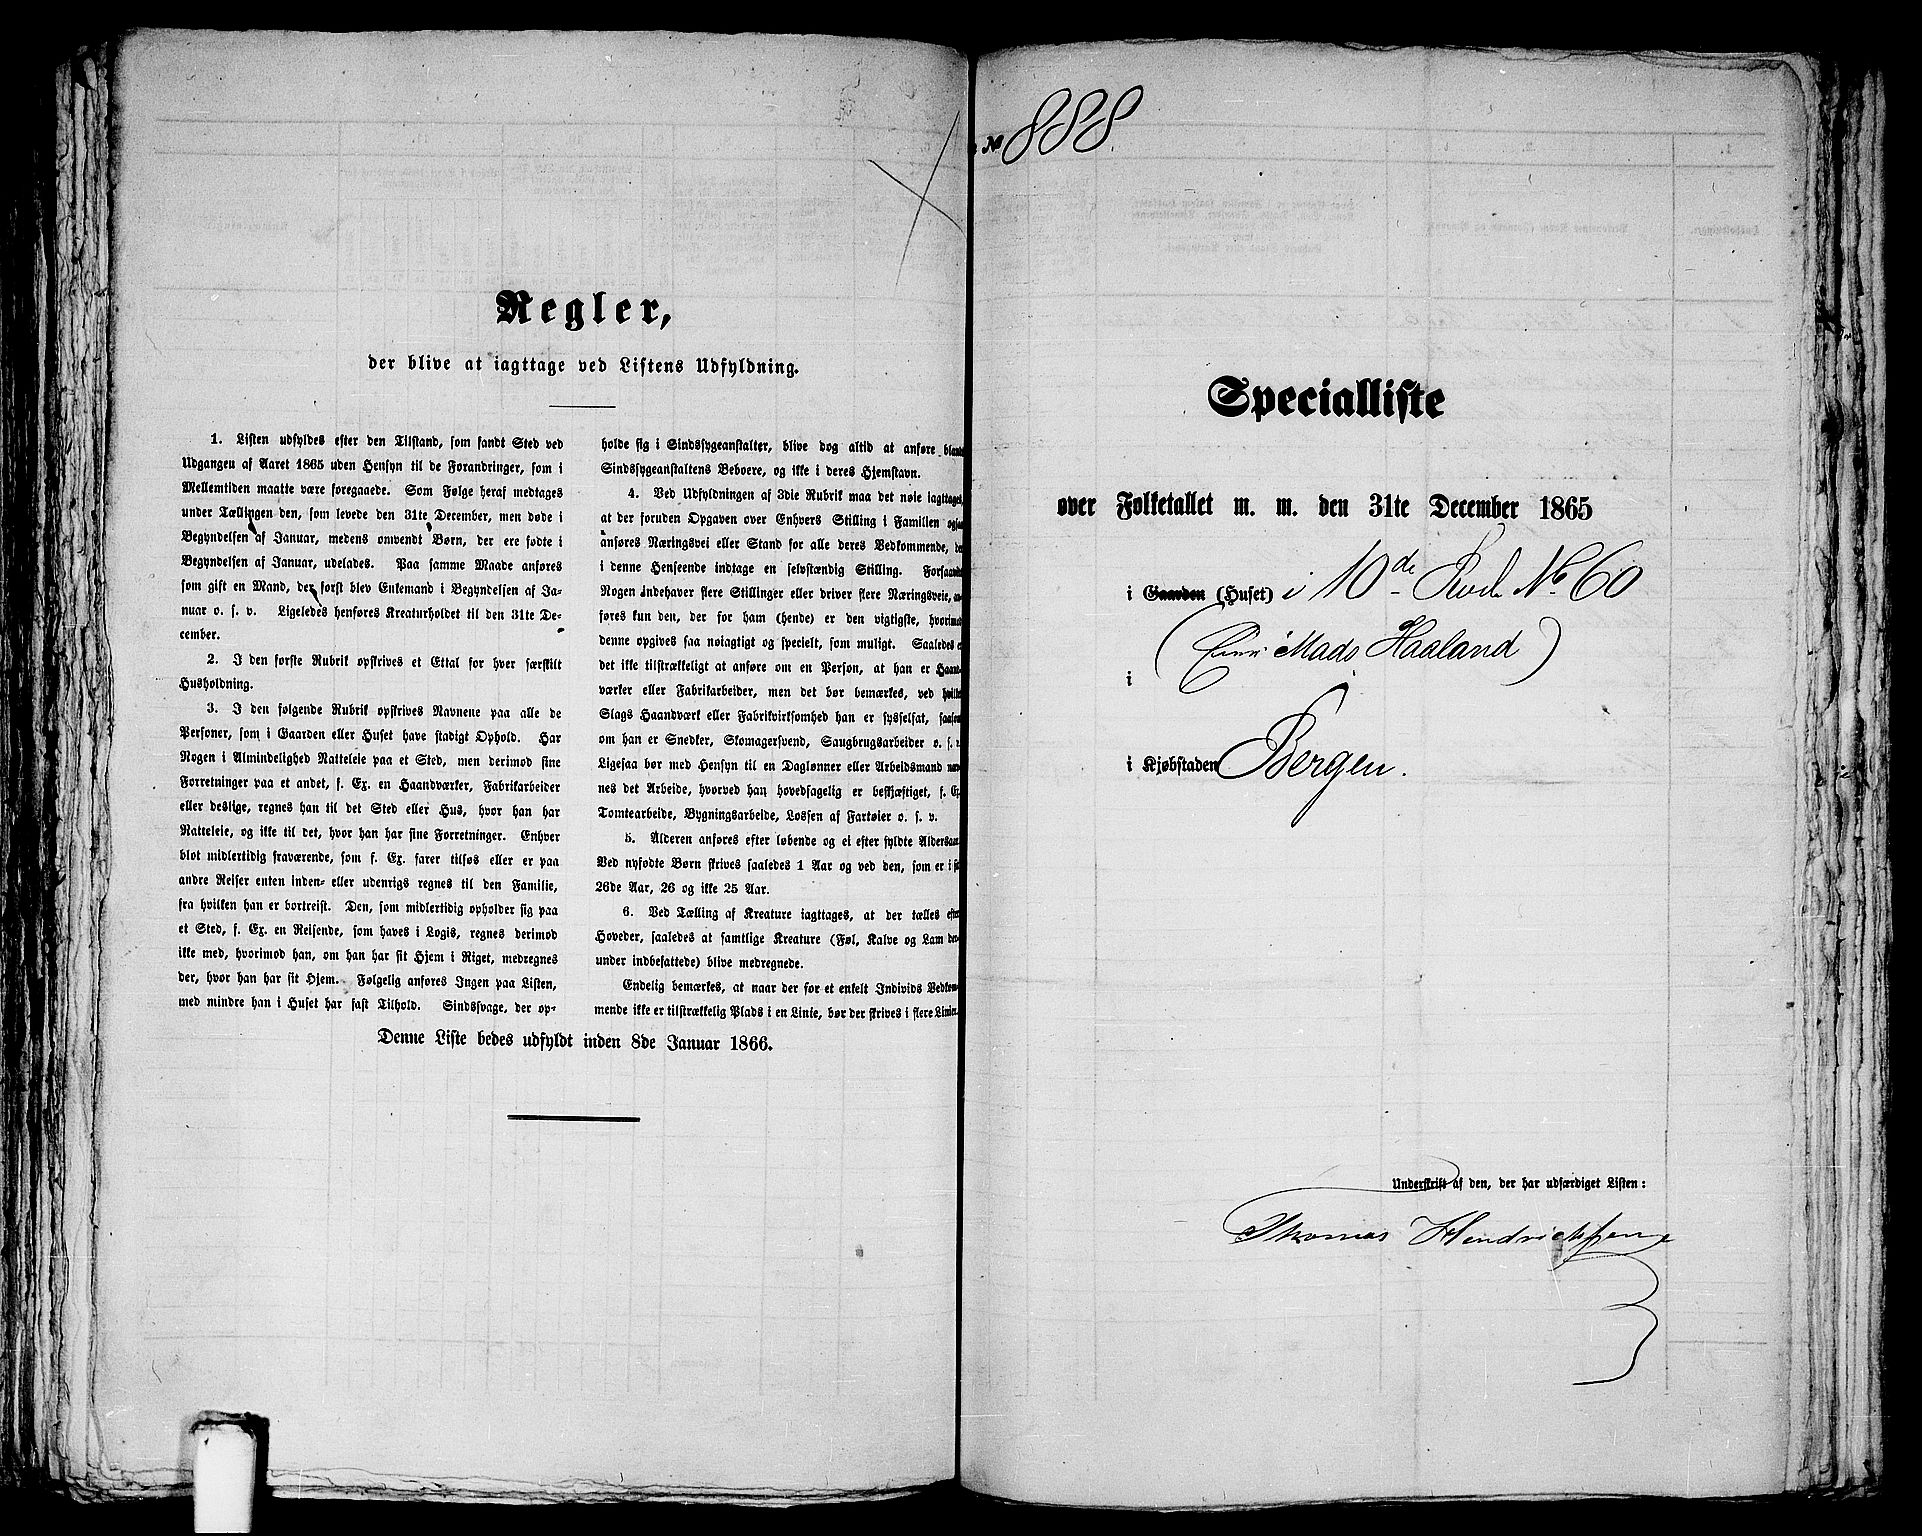 Regler,
der blive at iagttage ved Listens Udfyldning.
1. Listen udfyldes efter den Tilstand, som fandt Sted ved
Udgangen af Aaret 1865 uden Hensyn til de Forandringer, som i
Mellemtiden maatte være foregaaede. Som Følge heraf medtages
under Tællingen den, som levede den 31te December, men døde i
Begyndelsen af Januar, medens omvendt Børn, der ere fødte i
Begyndelsen af Januar, udelades. Paa samme Maade anføres
som gift en Mand, der først blev Enkemand i Begyndelsen af Ja-
nuar o. s. v. Ligeledes henføres Kreaturholdet til den 31te De-
cember.
2. I den første Rubrik opskrives et Ettal for hver særskilt
Husholdning.
3. I den følgende Rubrik opskrives Navnene paa alle de
Personer, som i Gaarden eller Huset have stadigt Ophold. Har
Nogen i Almindelighed Natteleie paa et Sted, men derimod sine
Forretninger paa et andet, f. Ex. en Haandværker, Fabrikarbeider
eller deslige, regnes han til det Sted eller Hus, hvor han har
Natteleie, og ikke til det, hvor han har sine Forretninger. Enhver
blot midlertidig fraværende, som f. Ex. farer tilsøs eller er paa
andre Reiser enten inden- eller udenrigs regnes til den Familie,
fra hvilken han er bortreist. Den, som midlertidig opholder sig paa
et Sted, f. Ex. en Reisende, som haves i Logis, regnes derimod
ikke med, hvorimod han, om han har sit Hjem i Riget, medregnes
der, hvor han har sit Hjem. Følgelig anføres Ingen paa Listen,
med mindre han i Huset har fast Tilhold. Sindssvage, der op-
holde sig i Sindssygeanstalter, blive dog altid at anføre blandt
Sindssygeanstaltens Beboere, og ikke i deres Hjemstavn.
4. Ved Udfyldningen af 3die Rubrik maa det nøie iagttages,
at der foruden Opgaven over Enhvers Stilling i Familien ogsaa
anføres Næringsvei eller Stand for alle deres Vedkommende, der
i denne Henseende indtage en selvstændig Stilling. Forsaavidt
Nogen indehaver flere Stillinger eller driver flere Næringsveie, an-
føres kun den, der for ham (hende) er den vigtigste, hvorimod
denne opgives saa nøiagtigt og specielt, som muligt. Saaledes er
det ikke tilstrækkeligt at anføre om en Person, at han er Haand-
værker eller Fabrikarbeider, men det bør bemærkes, ved hvilket
Slags Haandværk eller Fabrikvirksomhed han er sysselsat, saasom
om han er Snedker, Skomagersvend, Saugbrugsarbeider o. s. v.
Ligesaa bør med Hensyn til en Daglønner eller Arbeidsmand næv-
nes det Arbeide, hvorved han hovedsagelig er beskjæftiget, f. Ex.
Tomtearbeide, Bygningsarbeide, Lossen af Fartøier o. s. v.
5. Alderen anføres efter løbende og ei efter fyldte Aldersaar.
Ved nyfødte Børn skrives saaledes 1 Aar og ved den, som er i sit
26de Aar, 26 og ikke 25 Aar.
6. Ved Tælling af Kreature iagttages, at der tælles efter
Hoveder, saaledes at samtlige Kreature (Føl, Kalve og Lam der-
under indbefattede) blive medregnede.
Endelig bemærkes, at naar der for et enkelt Individs Vedkom-
mende ikke er tilstrækkelig Plads i en Linie, bør der skrives i flere Linier.
Denne Liste bedes udfyldt inden 8de Januar 1866.
No 888.
Specialliste
over Folketallet m. m. den 31te December 1865
i Gaarden (Huset) i 10de Rode No. 60
(Eier Mads Haaland)
i
i Kjøbstaden Bergen.
Underskrift af den, der har udfærdiget Listen:
Thomas Hendrichsen